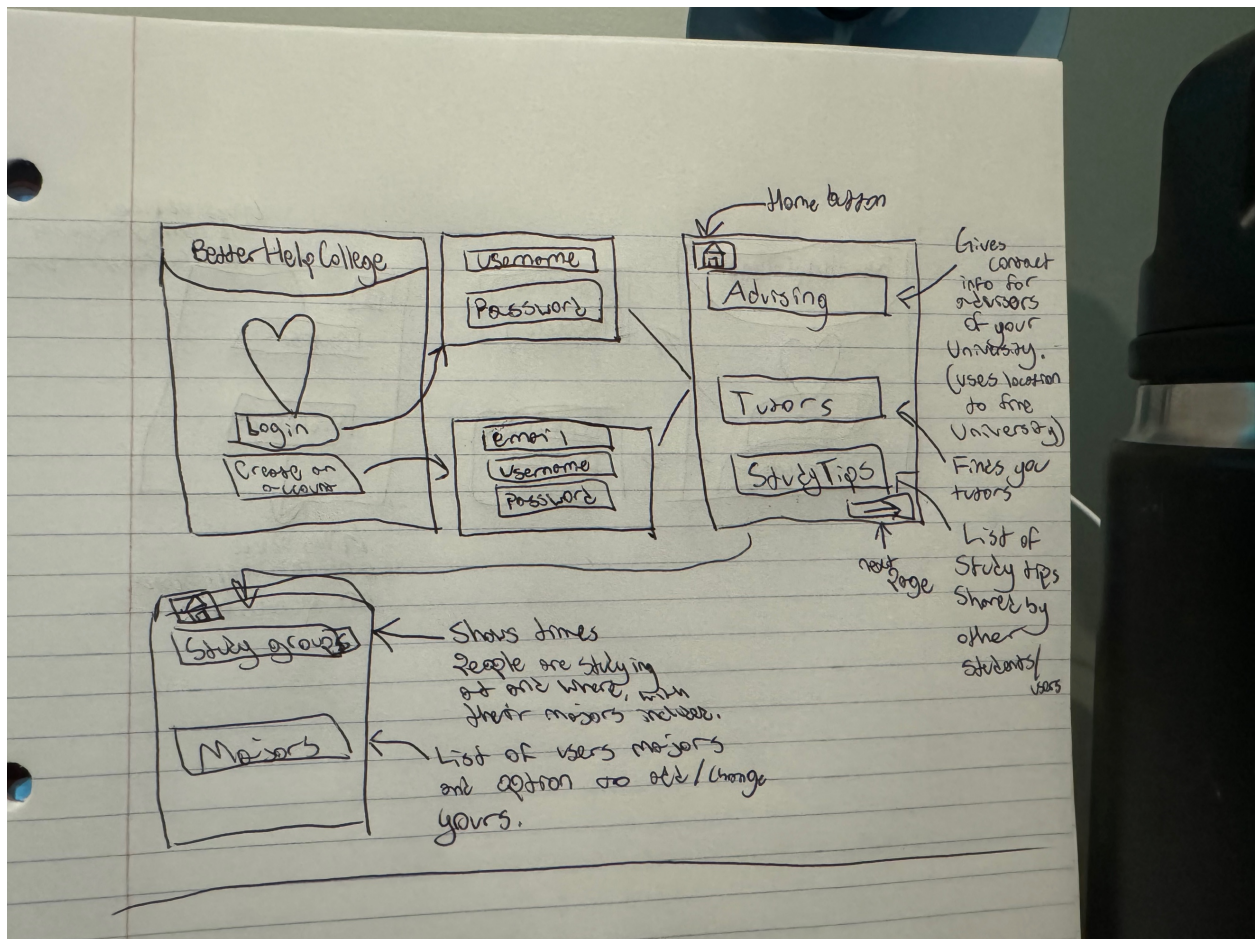 Home button
BetterHelpCollege
Login
Create an
account
username
Password
email
username
password
Advising
Tutors
StudyTips
Gives
contact
info for
advisors
of your
University.
(uses location
to fine
University)
Fines you
tutors
List of
Study tips
Shared by
other
students/
users
next
Page
Study groups
Shows times
People are studying
at and where, with
their majors included.
Majors
List of users majors
and option to add/change
yours.